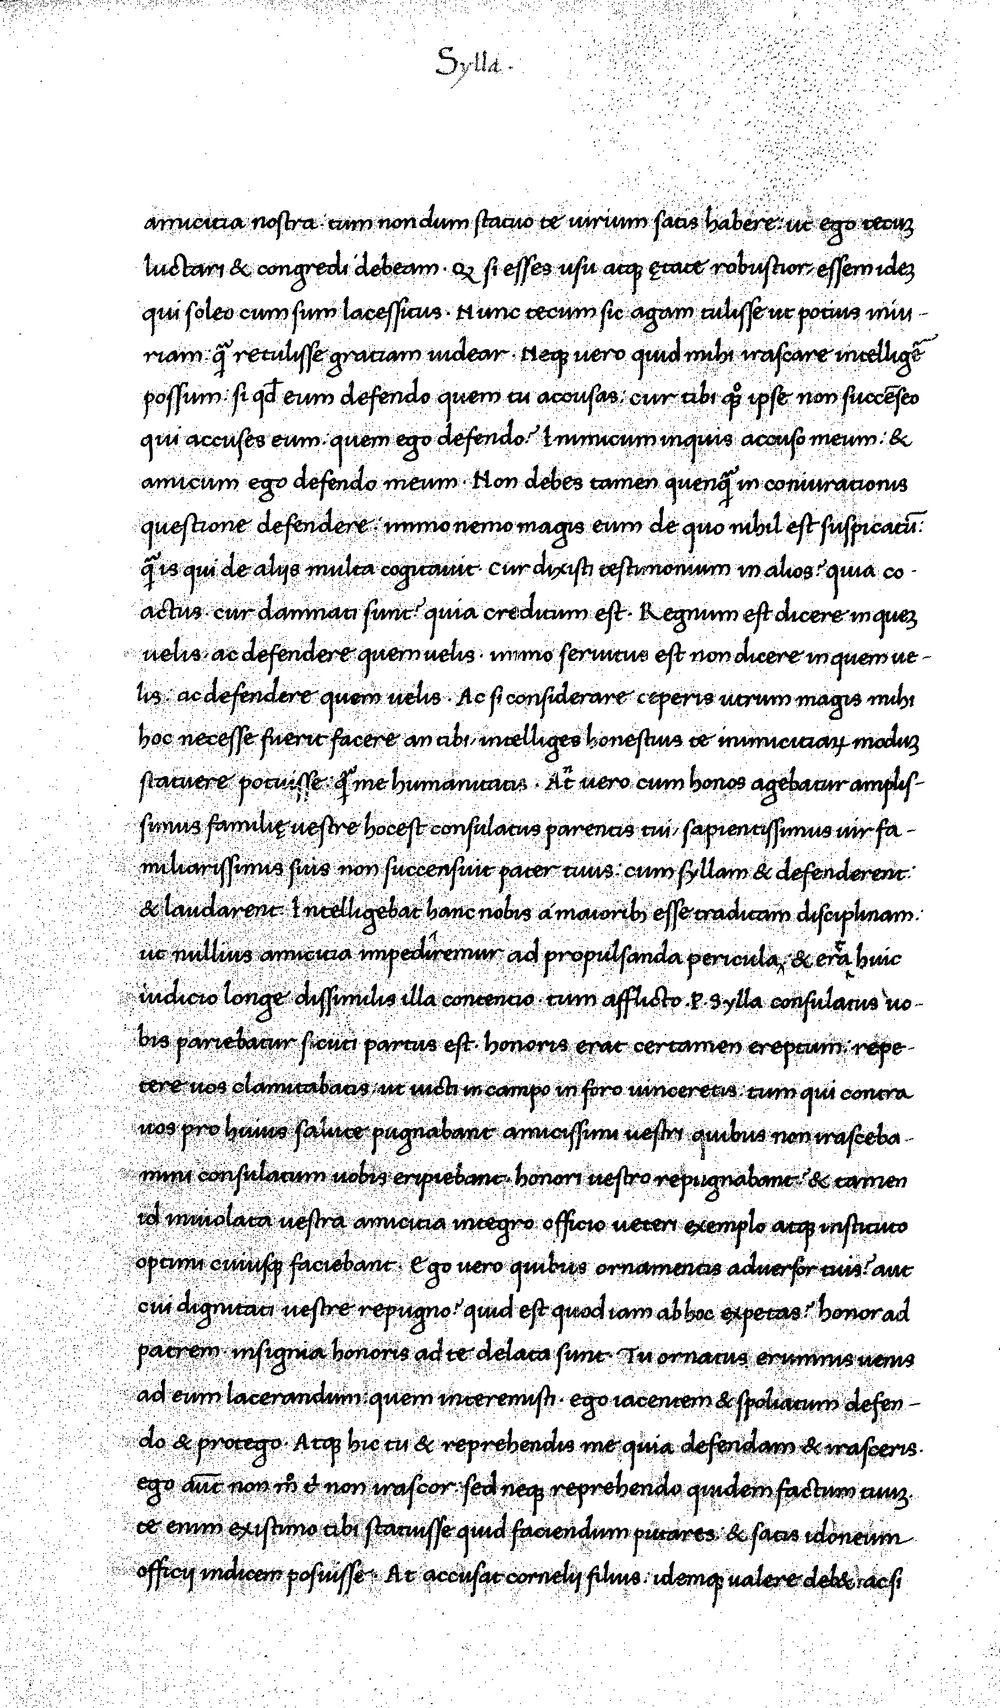 Sylla.
amicitia nostra. tum nondum statuo te uirium satis habere: ut ego tecuꝫ
luctari & congredi debeam. Qꝫ si esses usu atqꝫ ętate robustior, essem ideꝫ
qui soleo cum sum lacessitus. Nunc tecum sic agam tulisse ut potius iniu-
riam: q̃ retulisse gratiam uidear. Neqꝫ uero quid mihi irascare intelligē
possum: si qd̄ eum defendo quem tu accusas: cur tibi qͦꝫ ipse non succēseo
qui accuses eum. quem ego defendo? Inimicum inquis accuso meum: &
amicum ego defendo meum. Non debes tamen quenq̃ in coniurationis
questione defendere: immo nemo magis eum de quo nihil est suspicatū:
q̃ is qui de alijs multa cogitauit. Cur dixisti testimonium in alios? quia co-
actus. cur damnati sunt? quia creditum est. Regnum est dicere in queꝫ
uelis. ac defendere quem uelis. immo seruitus est non dicere in quem ue-
lis: ac defendere quem uelis. Ac si considerare ceperis utrum magis mihi
hoc necesse fuerit facere an tibi, intelliges honestius te inimicitiaꝝ moduꝫ
statuere potuisse: q̃ me humanitatis. At̄ uero cum honos agebatur amplis-
simus familię uestre hoc est consulatus parentis tui, sapientissimus uir fa-
miliarissimis suis non succensuit pater tuus: cum syllam & defenderent:
& laudarent. Intelligebat hanc nobis a maioribꝫ esse traditam disciplinam:
ut nullius amicitia impediremur ad propulsanda pericula, & erat huic
iudicio longe dissimilis illa contentio. tum afflicto .P. Sylla consulatus uo-
bis pariebatur sicuti partus est. honoris erat certamen ereptum: repe-
tere uos clamitabatis: ut uicti in campo in foro uinceretis: tum qui contra
uos pro huius salute pugnabant amicissimi uestri quibus non irasceba-
mini consulatum uobis eripiebant. honori uestro repugnabant? & tamen
id inuiolata uestra amicitia integro officio ueteri exemplo atqꝫ instituto
optimi cuiusqꝫ faciebant. Ego uero quibus ornamentis aduersor tuis? aut
cui dignitati uestre repugno? quid est quod iam ab hoc expetas? honor ad
patrem. insignia honoris ad te delata sunt. Tu ornatus exuuiis uenis
ad eum lacerandum: quem interemisti. ego iacentem & spoliatum defen-
do & protego. Atqꝫ hic tu & reprehendis me quia defendam & irasceris.
ego aūt non mͦ t̄ non irascor: sed neqꝫ reprehendo quidem factum tuuꝫ.
te enim existimo tibi statuisse quid faciendum putares: & satis idoneum
officij iudicem posuisse. At accusat cornelij filius: idemqꝫ ualere deb&: ac si